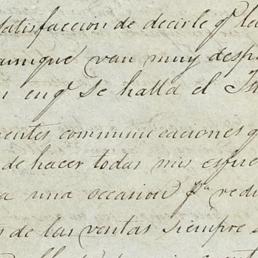 satisfaccion de decirle q.e la
aunque van muy desp
en q.e se halla el
entes communicaciones q
de hacer todas mis esfue
a una occasion p.a redu
s de las ventas siempre